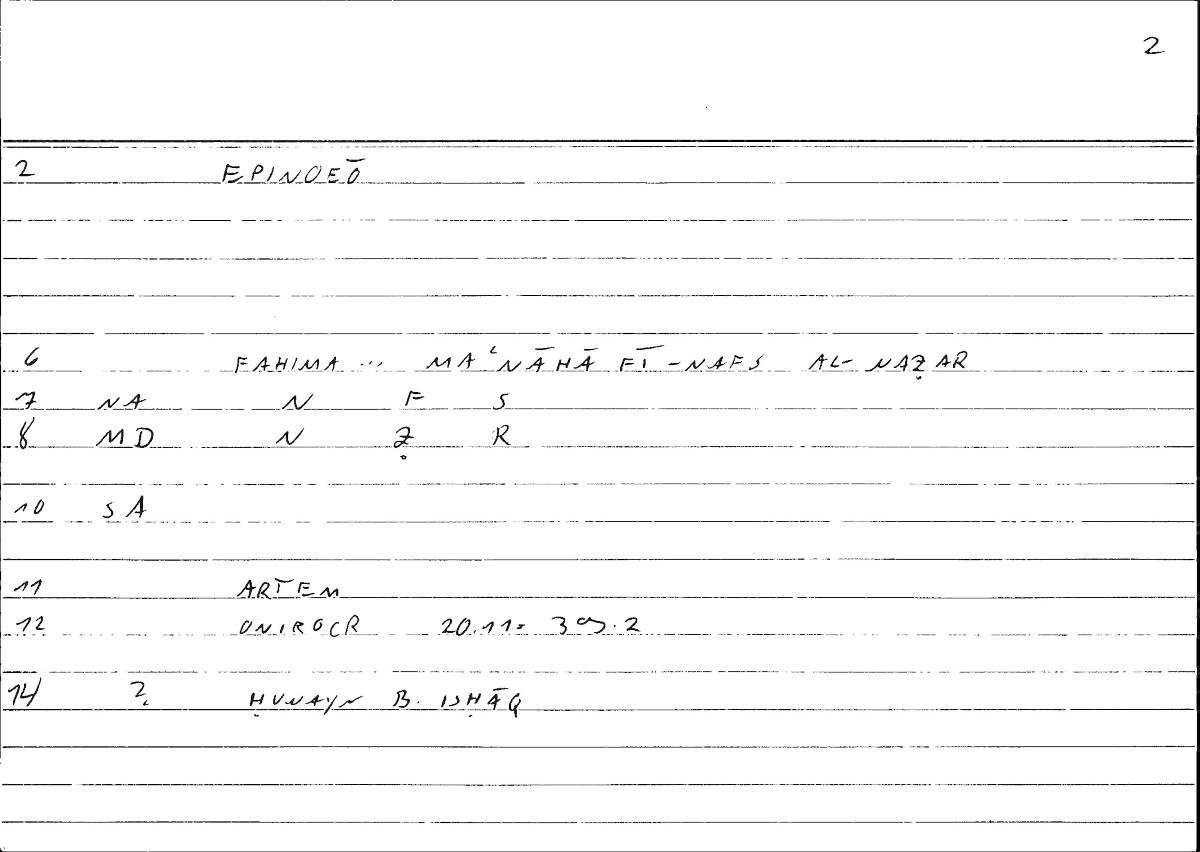 2
2 EPINOEŌ
6 FAHIMA ... MAʿNĀHĀ FĪ-NAFS AL-NAẒAR
7 NA N F S
8 MD N Ẓ R
10 SA
11 ARTEM
12 ONIROCR 20.11=
14 ? ḤUNAYN B. ISḤĀQ